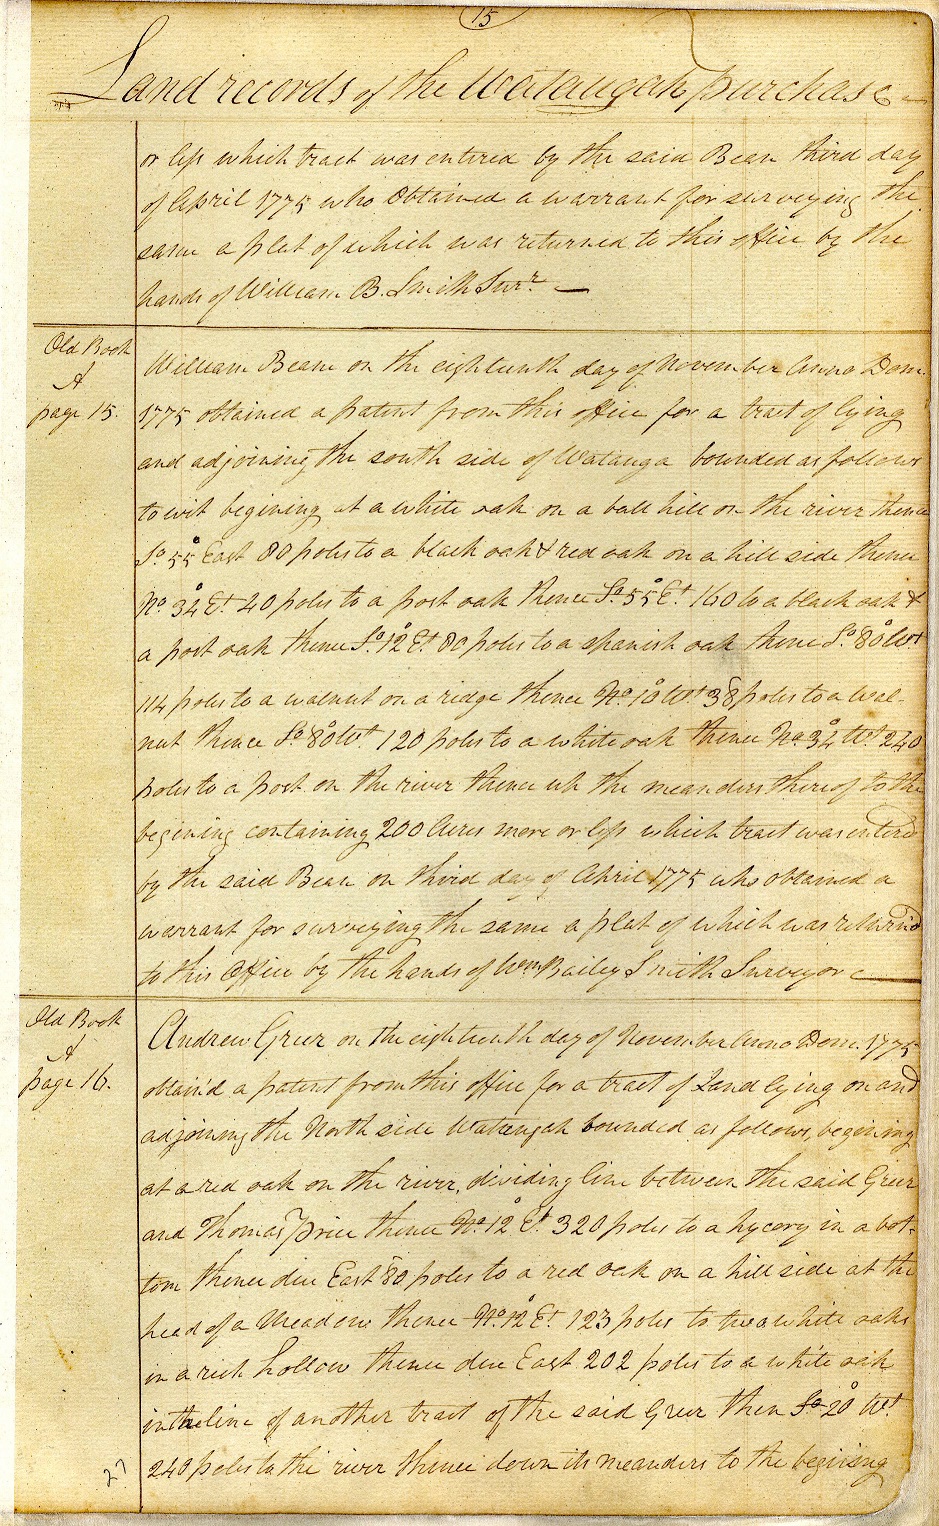 15
Land records of the Wataugah purchase
or less which tract was entered by the said Bean third day
of April 1775 who Obtained a warrant for surveying the
same a plat of which was returned to this office by the
hands of William B. Smith Survr.
Old Book
A
page 15.
William Bean on the eighteenth day of November Anno Dom.
1775 obtained a patent from this office for a tract of lying
and adjoining the south side of Watauga bounded as follows
to wit begining at a white oak on a ball hill on the river thence
So. 55° East 80 poles to a black oak & red oak on a hill side thence
No. 34° Et. 40 poles to a post oak thence So. 55° Et. 160 to a black oak &
a post oak thence So. 12° Et 80 poles to a spanish oak thence So. 80° Wt
114 poles to a walnut on a ridge thence No. 10° Wt 38 poles to a wal-
nut thence So. 80° Wt. 120 poles to a white oak thence No. 34° Wt 240
poles to a post on the river thence up the meanders thereof to the
begining containing 200 Acres more or less which tract was entered
by the said Bean on third day of April 1775 who obtained a
warrant for surveying the same a plat of which was returnd
to this Office by the hands of Wm. Bailey Smith Surveyor
Old Book
A
page 16.
Andrew Greer on the eighteenth day of November Anno Dom. 1775
obtain'd a patent from this office for a tract of Land lying on and
adjoining the North side Wataugah bounded as follows, begining
at a red oak on the river, dividing line between the said Greer
and Thomas price thence No. 12° Et. 320 poles to a hycory in a bot-
tom thence due East 80 poles to a red oak on a hill side at the
head of a Meadow thence No. 12° Et. 123 poles to two white oaks
in a rich hollow thence due East 202 poles to a white oak
in the line of another tract of the said Greer then So 20° Wt.
240 poles to the river thence down its meanders to the begining
27